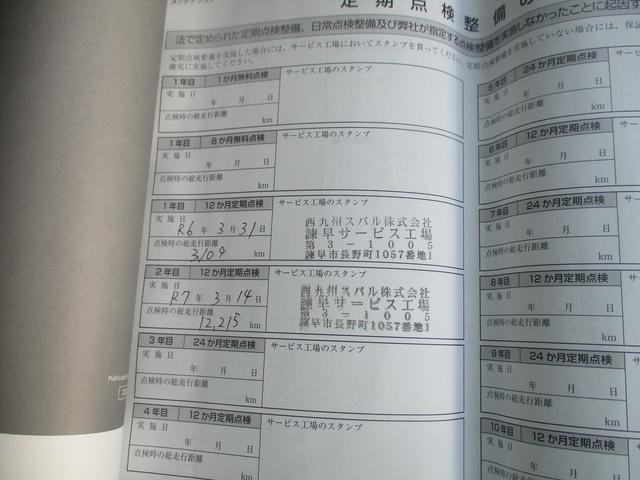 メンテナンス
定期点検整備の
法で定められた定期点検整備、日常点検整備及び弊社が指定する点検整備を実施しなかったことに起因す
定期点検整備を実施した場合には、サービス工場においてスタンプを貰ってください。定期点検整備を実施していない場合は、保証
確実に実施してください。
1年目 1か月無料点検 サービス工場のスタンプ
実施日
年 月 日
点検時の総走行距離
km
1年目 6か月無料点検 サービス工場のスタンプ
実施日
年 月 日
点検時の総走行距離
km
1年目 12か月定期点検 サービス工場のスタンプ
実施日
R6年 3月31日
点検時の総走行距離
3109 km
西九州スバル株式会社
諫早サービス工場
第3-1005
諫早市長野町1057番地1
2年目 12か月定期点検 サービス工場のスタンプ
実施日
R7年 3月14日
点検時の総走行距離
12,215 km
西九州スバル株式会社
諫早サービス工場
第3-1005
諫早市長野町1057番地1
3年目 24か月定期点検 サービス工場のスタンプ
実施日
年 月 日
点検時の総走行距離
km
4年目 12か月定期点検 サービス工場のスタンプ
実施日
年 月 日
点検時の総走行距離
km
5年目 24か月定期点検 サー
実施日
年 月 日
点検時の総走行距離
km
6年目 12か月定期点検 サー
実施日
年 月 日
点検時の総走行距離
km
7年目 24か月定期点検
実施日
年 月 日
点検時の総走行距離
km
8年目 12か月定期点検
実施日
年 月 日
点検時の総走行距離
km
9年目 24か月定期点検
実施日
年 月 日
点検時の総走行距離
km
10年目 12か月定期点検
実施日
年 月 日
点検時の総走行距離
km